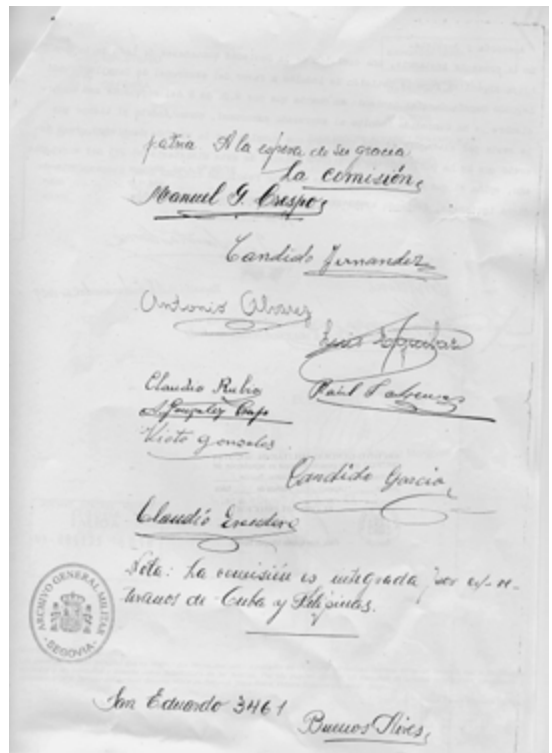 patria A la espera de su gracia
La comisión,
Manuel G. Crespo,
Candido Fernandez
Antonio Alvarez
Luis
Claudio Rubio
Raúl
A. Gonzalez
Victo Gonzales.
Candido Garcia
Claudio
Nota: La comisión es integrada por ex-ve-
teranos de Cuba y Filipinas.
ARCHIVO GENERAL MILITAR
SEGOVIA
San Eduardo 3461
Buenos Aires,